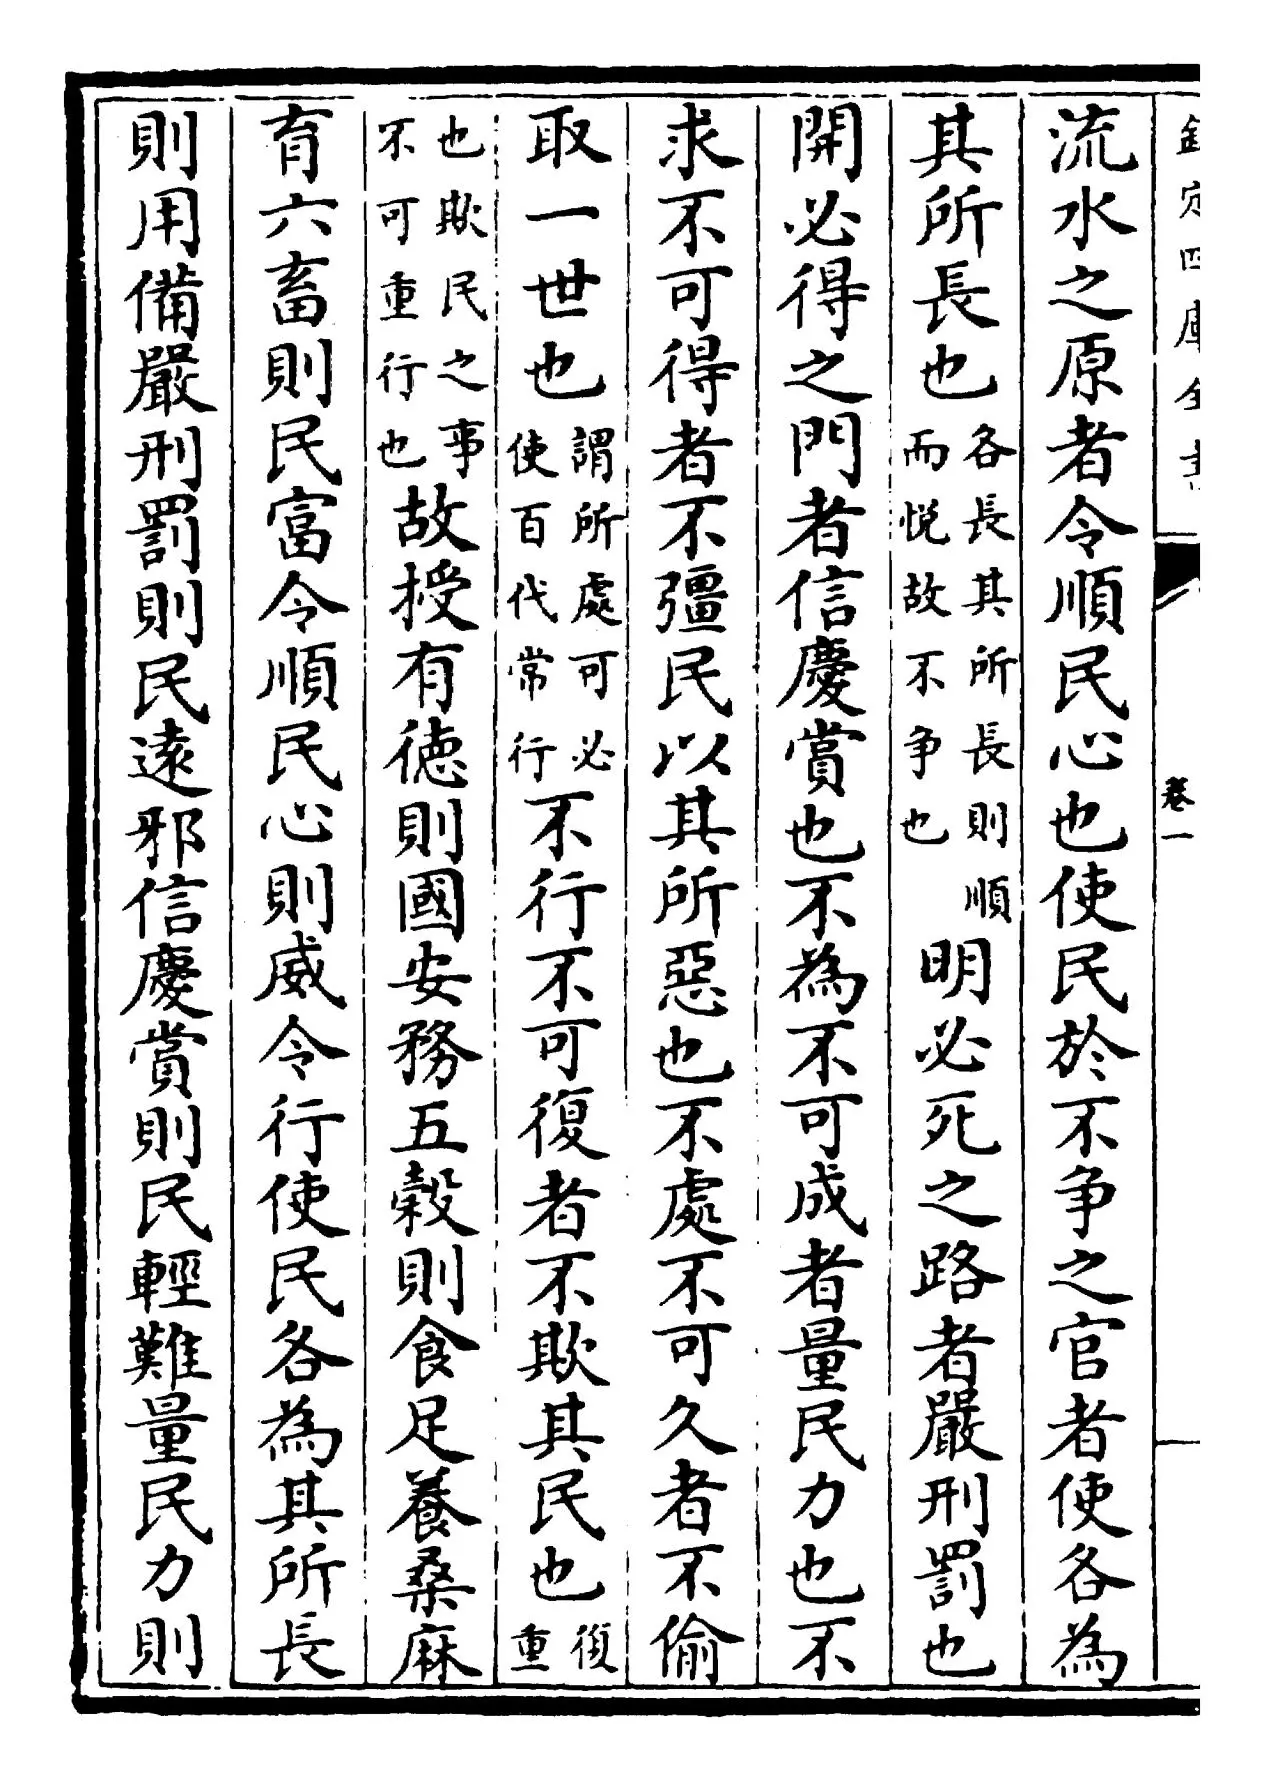 欽定四庫全書
卷一
流水之原者令順民心也使民於不争之官者使各為
其所長也各長其所長則順而悦故不争也明必死之路者嚴刑罰也
開必得之門者信慶賞也不為不可成者量民力也不
求不可得者不彊民以其所惡也不處不可久者不偷
取一世也謂所處可必使百代常行不行不可復者不欺其民也復重
也欺民之事不可重行也故授有徳則國安務五穀則食足養桑麻
育六畜則民富令順民心則威令行使民各為其所長
則用備嚴刑罰則民逺邪信慶賞則民輕難量民力則